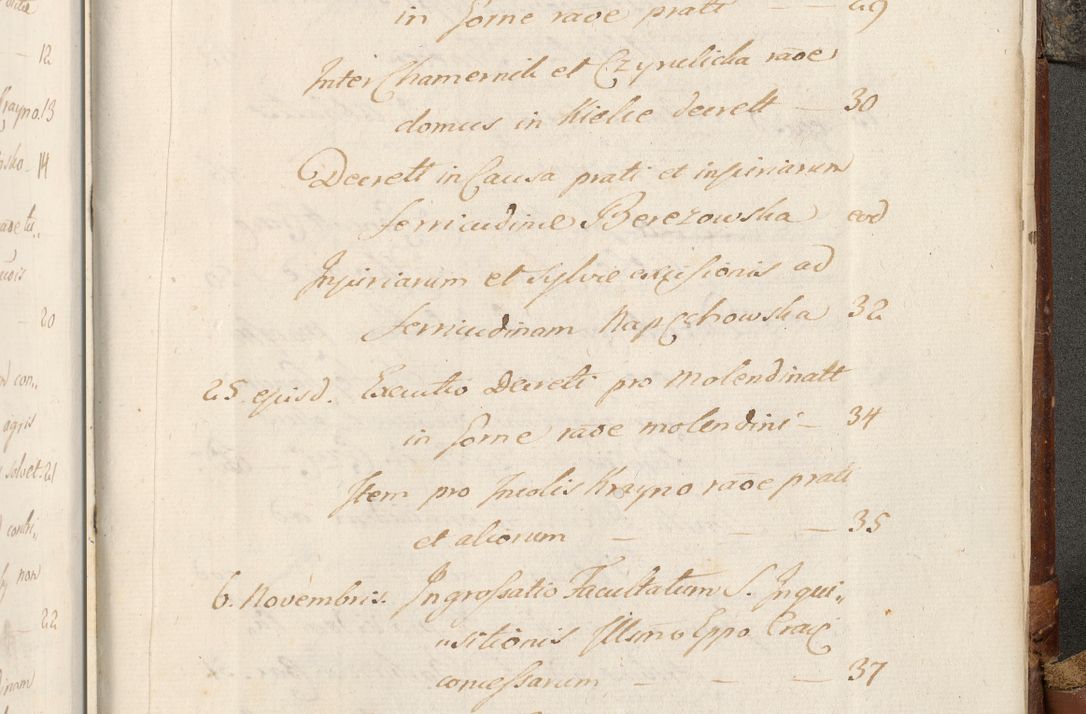 12
Krayno. 13
14
20
con„
agris
solvet. 21
non
22
in Gorne rãoe prati — — 29
Inter Chamernik et Czyrulicka rãoe
domus in Kielce decrett — 30
Decrett in Causa prati et injuriarum
ferricudinæ Berezowska eod
Injuriarum et sylvæ excisionis ad
ferricudinam Kapçchowska 32
25. ejusd. Executio Decreti pro Molendinatt
in Gorne rãoe molendini — 34
Item pro Incolis Krayno rãoe prati
et aliorum — — — 35
6. Novembris. Ingrossatio Facultatum S. Inqui„
„sitionis Illm̃o Eppo Crac̃
concessarum — — — 37